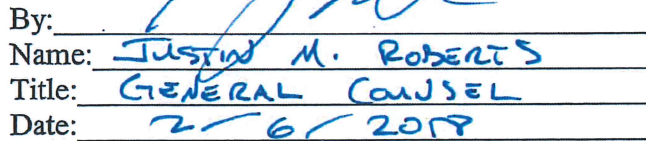 By:
Name: JUSTIN M. ROBERTS
Title: GENERAL COUNSEL
Date: 2/6/2018